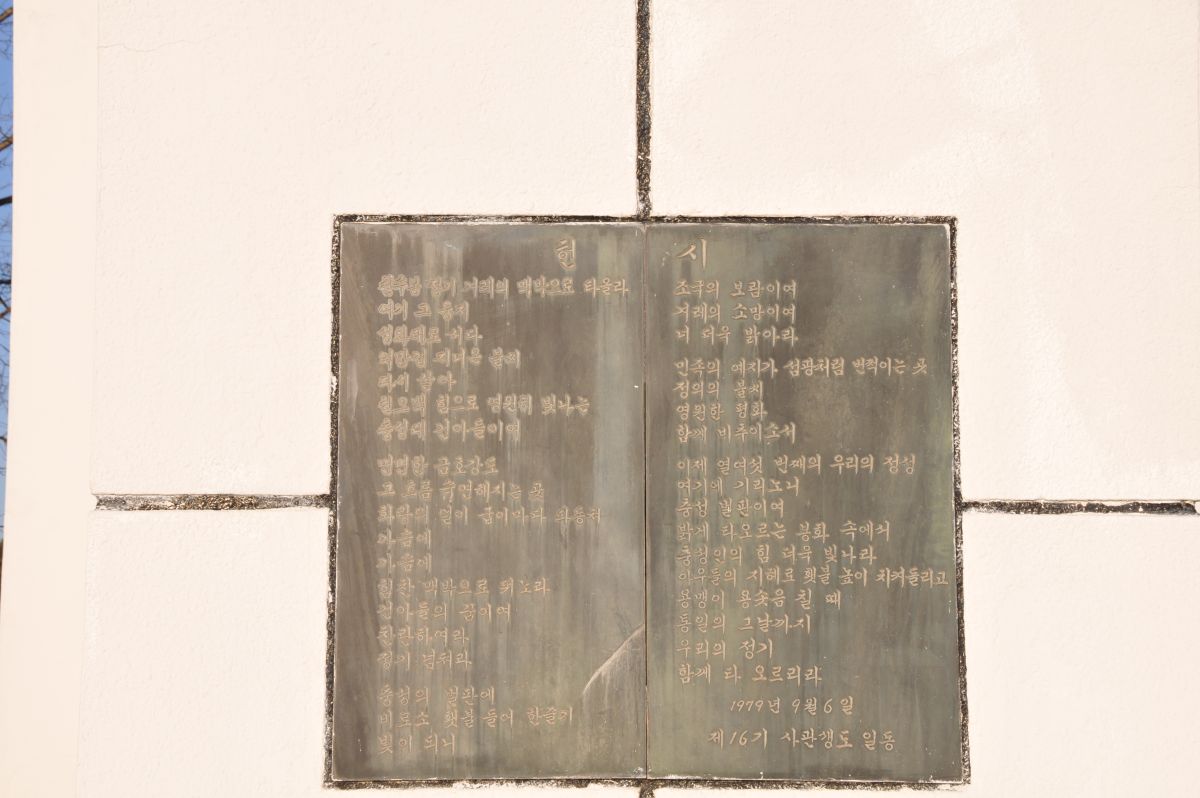 헌 시
정기 겨레의 맥박으로 타올라
여기 그
불씨
다시 살아
힘으로 영원히 빛나는
건아들이여
면면한 금호강도
그 흐름 숙연해지는 곳
얼이 굽이마다
가슴에
가슴에
힘찬 맥박으로 뛰노라
건아들의 꿈이여
찬란하여라
정기 넘쳐라
충성의 벌판에
비로소 횃불 들어 한줄기
빛이 되니
조국의 보람이여
겨레의 소망이여
너 더욱 밝아라
민족의 예지가 섬광처럼 번쩍이는 곳
정의의 불씨
영원한 평화
함께 비추이소서
이제 열여섯 번째의 우리의 정성
여기에 기리노니
충성 벌판이여
밝게 타오르는 봉화 속에서
충성인의 힘 더욱 빛나라
아우들의 지혜로 횃불 높이 치켜들리고
용맹이 용솟음 칠 때
통일의 그날까지
우리의 정기
함께 타 오르리라
1979년 9월 6일
제16기 사관생도 일동